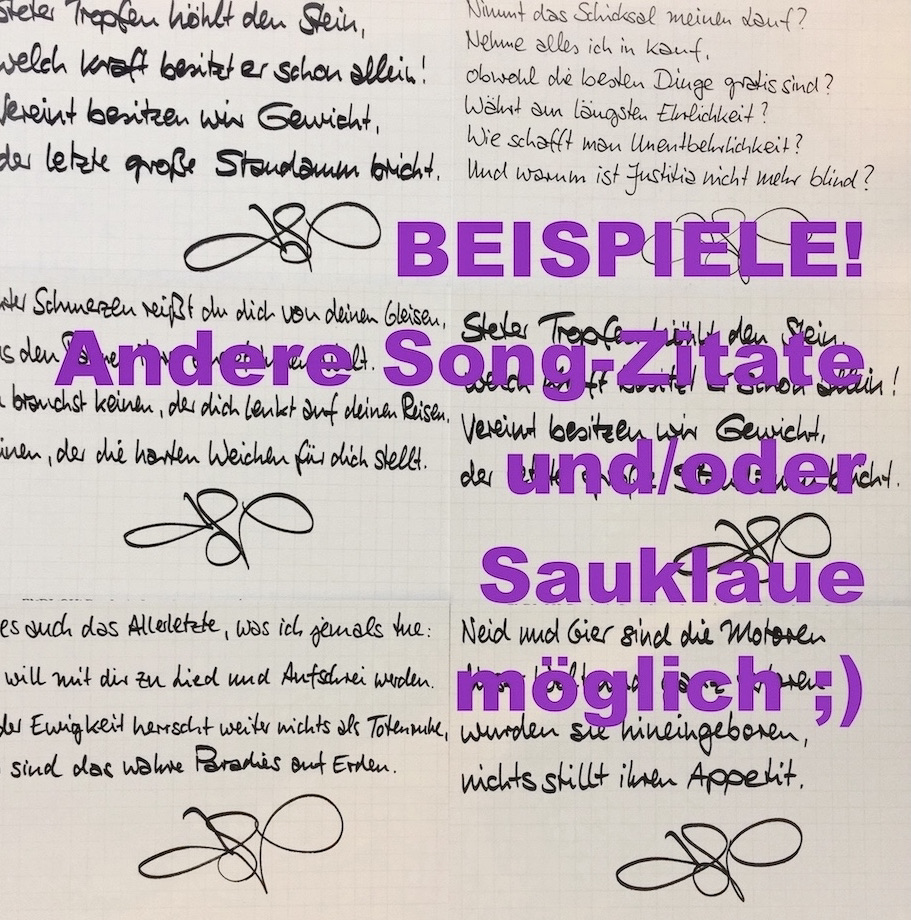 Steter Tropfen höhlt den Stein,
welch kraft besitzt er schon allein!
Vereint besitzen wir Gewicht,
der letzte große Staudamm bricht.
Nimmt das Schicksal meinen Lauf?
Nehme alles ich in kauf,
obwohl die besten Dinge gratis sind?
Währt am längsten Ehrlichkeit?
Wie schafft man Unentbehrlichkeit?
Und warum ist Justitia nicht mehr blind?
BEISPIELE!
Andere Song-Zitate
und/oder
Sauklaue
möglich ;)
Schmerzen reißt du dich von deinen Gleisen,
den
brauchst keinen, der dich lenkt auf deinen Reisen,
der die harten Weichen für dich stellt.
Steter Tropfen höhlt den Stein,
welch kraft besitzt er schon allein!
Vereint besitzen wir Gewicht,
der letzte große Staudamm bricht.
es auch das Allerletzte, was ich jemals tue:
will mit dir zu Lied und Aufschrei werden.
der Ewigkeit herrscht weiter nichts als Totenruhe,
sind das wahre Paradies auf Erden.
Neid und Gier sind die Motoren
wurden sie hineingeboren,
nichts stillt ihren Appetit.